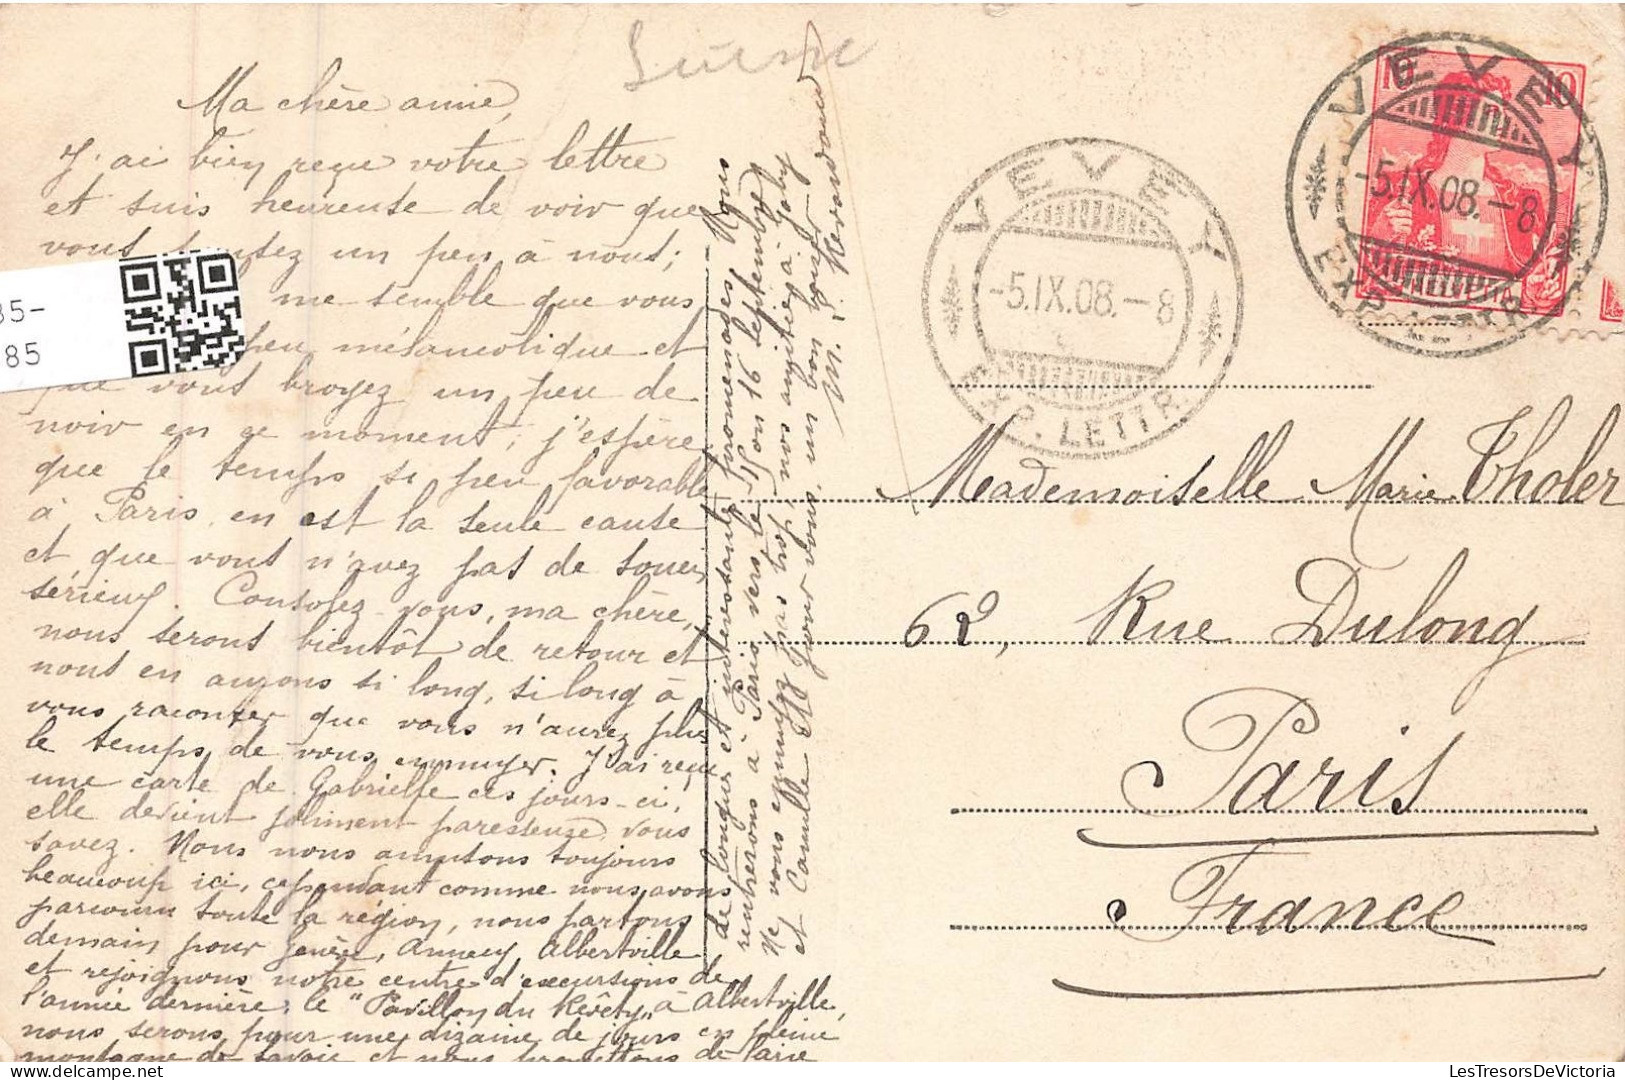 Suisse
Ma chère amie,
J'ai bien reçu votre lettre
et suis heureuse de voir que
vous pensez un peu à nous;
me semble que vous
peu mélancolique et
que vous broyez un peu de
noir en ce moment; j'espère
que le temps si peu favorable
à Paris en est la seule cause
et que vous n'avez pas de souci
sérieux. Consolez-vous, ma chère,
nous serons bientôt de retour et
nous en aurons si long, si long à
vous raconter que vous n'aurez plus
le temps de vous ennuyer. J'ai reçu
une carte de Gabrielle ces jours-ci,
elle devient joliment paresseuse vous
savez. Nous nous amusons toujours
beaucoup ici, cependant comme nous avons
parcouru toute la région, nous partons
demain pour Genève, Annecy, Albertville
et rejoignons notre centre d'excursions de
l'année dernière; le "Pavillon du à Albertville,
nous serons pour une dizaine de jours en pleine
montagne de Savoie et nous promettons de faire
de longues et intéressantes promenades. Nous
rentrerons à Paris vers le 15 ou 16 Septembre,
Ne vous ennuyez pas trop, nos amitiés à Jaby
et Camille et pour vous, un bon baiser
M. L.
VEVEY
-5.IX.08.-8
EXP. LETTR.
VEVEY
-5.IX.08.-8
EXP. LETTR.
10
10
HELVETIA
Mademoiselle Marie Tholer
62, Rue Dulong
Paris
France
35-
85
LesTresorsDeVictoria